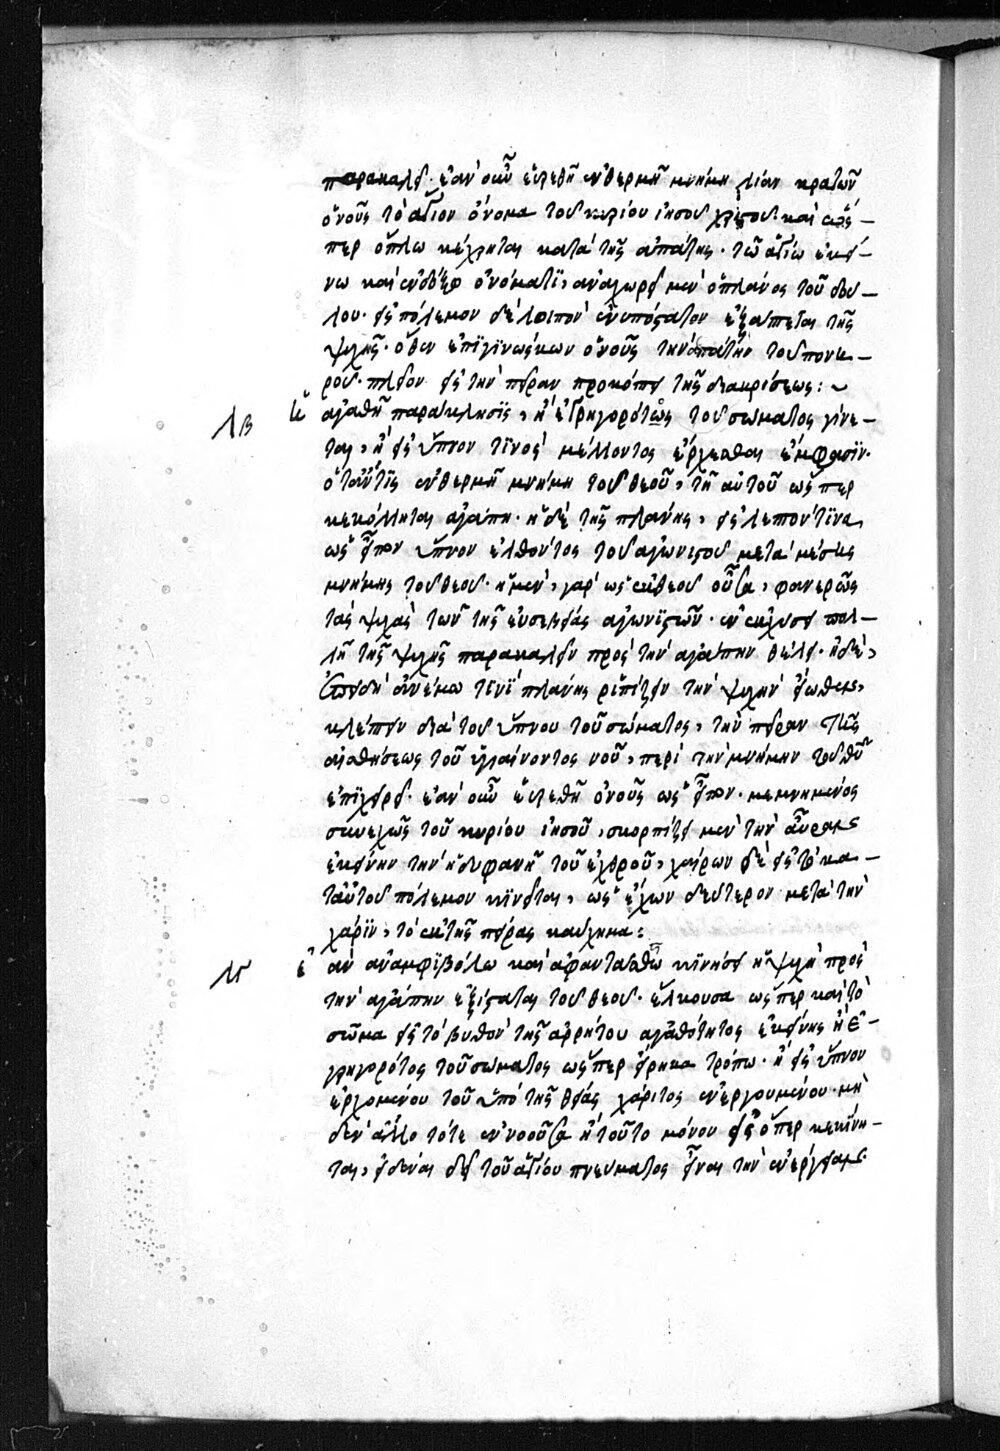 παρακαλεῖ· ἐὰν οὖν εὑρεθῆ ἐν θερμῆ μνήμη λίαν κρατῶν
ὁ νοῦς τὸ ἅγιον ὄνομα τοῦ κυρίου ἰησοῦ χριστοῦ καὶ ὥσ-
περ ὅπλω κέχρηται κατὰ τῆς ἀπάτης· τῶ ἁγίω ἐκεί-
νω καὶ ἐνδόξω ὀνόματι, ἀναχωρεῖ μὲν ὁ πλάνος τοῦ δό-
λου· εἰς πόλεμον δὲ λοιπὸν ἐνυπόστατον ἐξάπτεται τῆς
ψυχῆς· ὅθεν ἐπιγινώσκων ὁ νοῦς τὴν ἀπάτην τοῦ πονη-
ροῦ· πλεῖον εἰς τὴν πεῖραν προκόπτει τῆς διακρίσεως:~
λβ Ἡ
ἀγαθὴ παράκλησις, ἢ ἐγρηγορότως τοῦ σώματος γίνε-
ται, ἢ εἰς ὕπνον τινὸς μέλλοντος ἔρχεσθαι ἔμφασιν·
ὅταν τις ἐν θερμῆ μνήμη τοῦ θεοῦ, τῆ αὐτοῦ ὥσπερ
κεκόλληται ἀγάπη· ἡ δὲ τῆς πλάνης, εἰς λεπτόν τινα,
ὡς εἶπον ὕπνον ἐλθόντος τοῦ ἀγωνιστοῦ μετὰ μέσης
μνήμης τοῦ θεοῦ· ἡ μὲν, γὰρ ὡς ἐκ θεοῦ οὖσα, φανερῶς
τὰς ψυχὰς τῶν τῆς εὐσεβείας ἀγωνιστῶν· ἐν ἐκχύσει πολ-
λῆ τῆς ψυχῆς παρακαλεῖν πρὸς τὴν ἀγάπην θέλει· ἡ δὲ,
ἐπειδὴ ἀνέμω τινὶ πλάνης ῥιπίζειν τὴν ψυχὴν εἴωθεν,
κλέπτειν διὰ τοῦ ὕπνου τοῦ σώματος, τὴν πεῖραν τῆς
αἰσθήσεως τοῦ ὑγιαίνοντος νοῦ, περὶ τὴν μνήμην τοῦ θεοῦ
ἐπιχειρεῖ· ἐὰν οὖν εὑρεθῆ ὁ νοῦς ὡς εἶπον· μεμνημένος
συνεχῶς τοῦ κυρίου ἰησοῦ, σκορπίζει μὲν τὴν αὖραν
ἐκείνην τὴν ἡδυφανῆ τοῦ ἐχθροῦ, χαίρων δὲ εἰς τὸ κα-
τ᾽ αὐτοῦ πόλεμον κινεῖται, ὡς ἔχων δεύτερον μετὰ τὴν
χάριν, τὸ ἐκ τῆς πείρας καύχημα:
λγ Ἐ
ὰν ἀναμφιβόλω καὶ ἀφαντάστω κινήσει ἡ ψυχὴ πρὸς
τὴν ἀγάπην ἐξίσταται τοῦ θεοῦ· ἕλκουσα ὥσπερ καὶ τὸ
σῶμα εἰς τὸ βυθὸν τῆς ἀρρήτου ἀγαθότητος ἐκείνης ἢ ἐ-
γρηγορότος τοῦ σώματος ὥσπερ εἴρηκα τρόπω· ἢ εἰς ὕπνον
ἐρχομένου τοῦ ὑπὸ τῆς θείας χάριτος ἐνεργουμένου· μη-
δὲν ἄλλο τότε ἐννοοῦσα ἢ τοῦτο μόνον εἰς ὅπερ κεκίνη-
ται, εἰδέναι δεῖ τοῦ ἁγίου πνεύματος εἶναι τὴν ἐνέργειαν